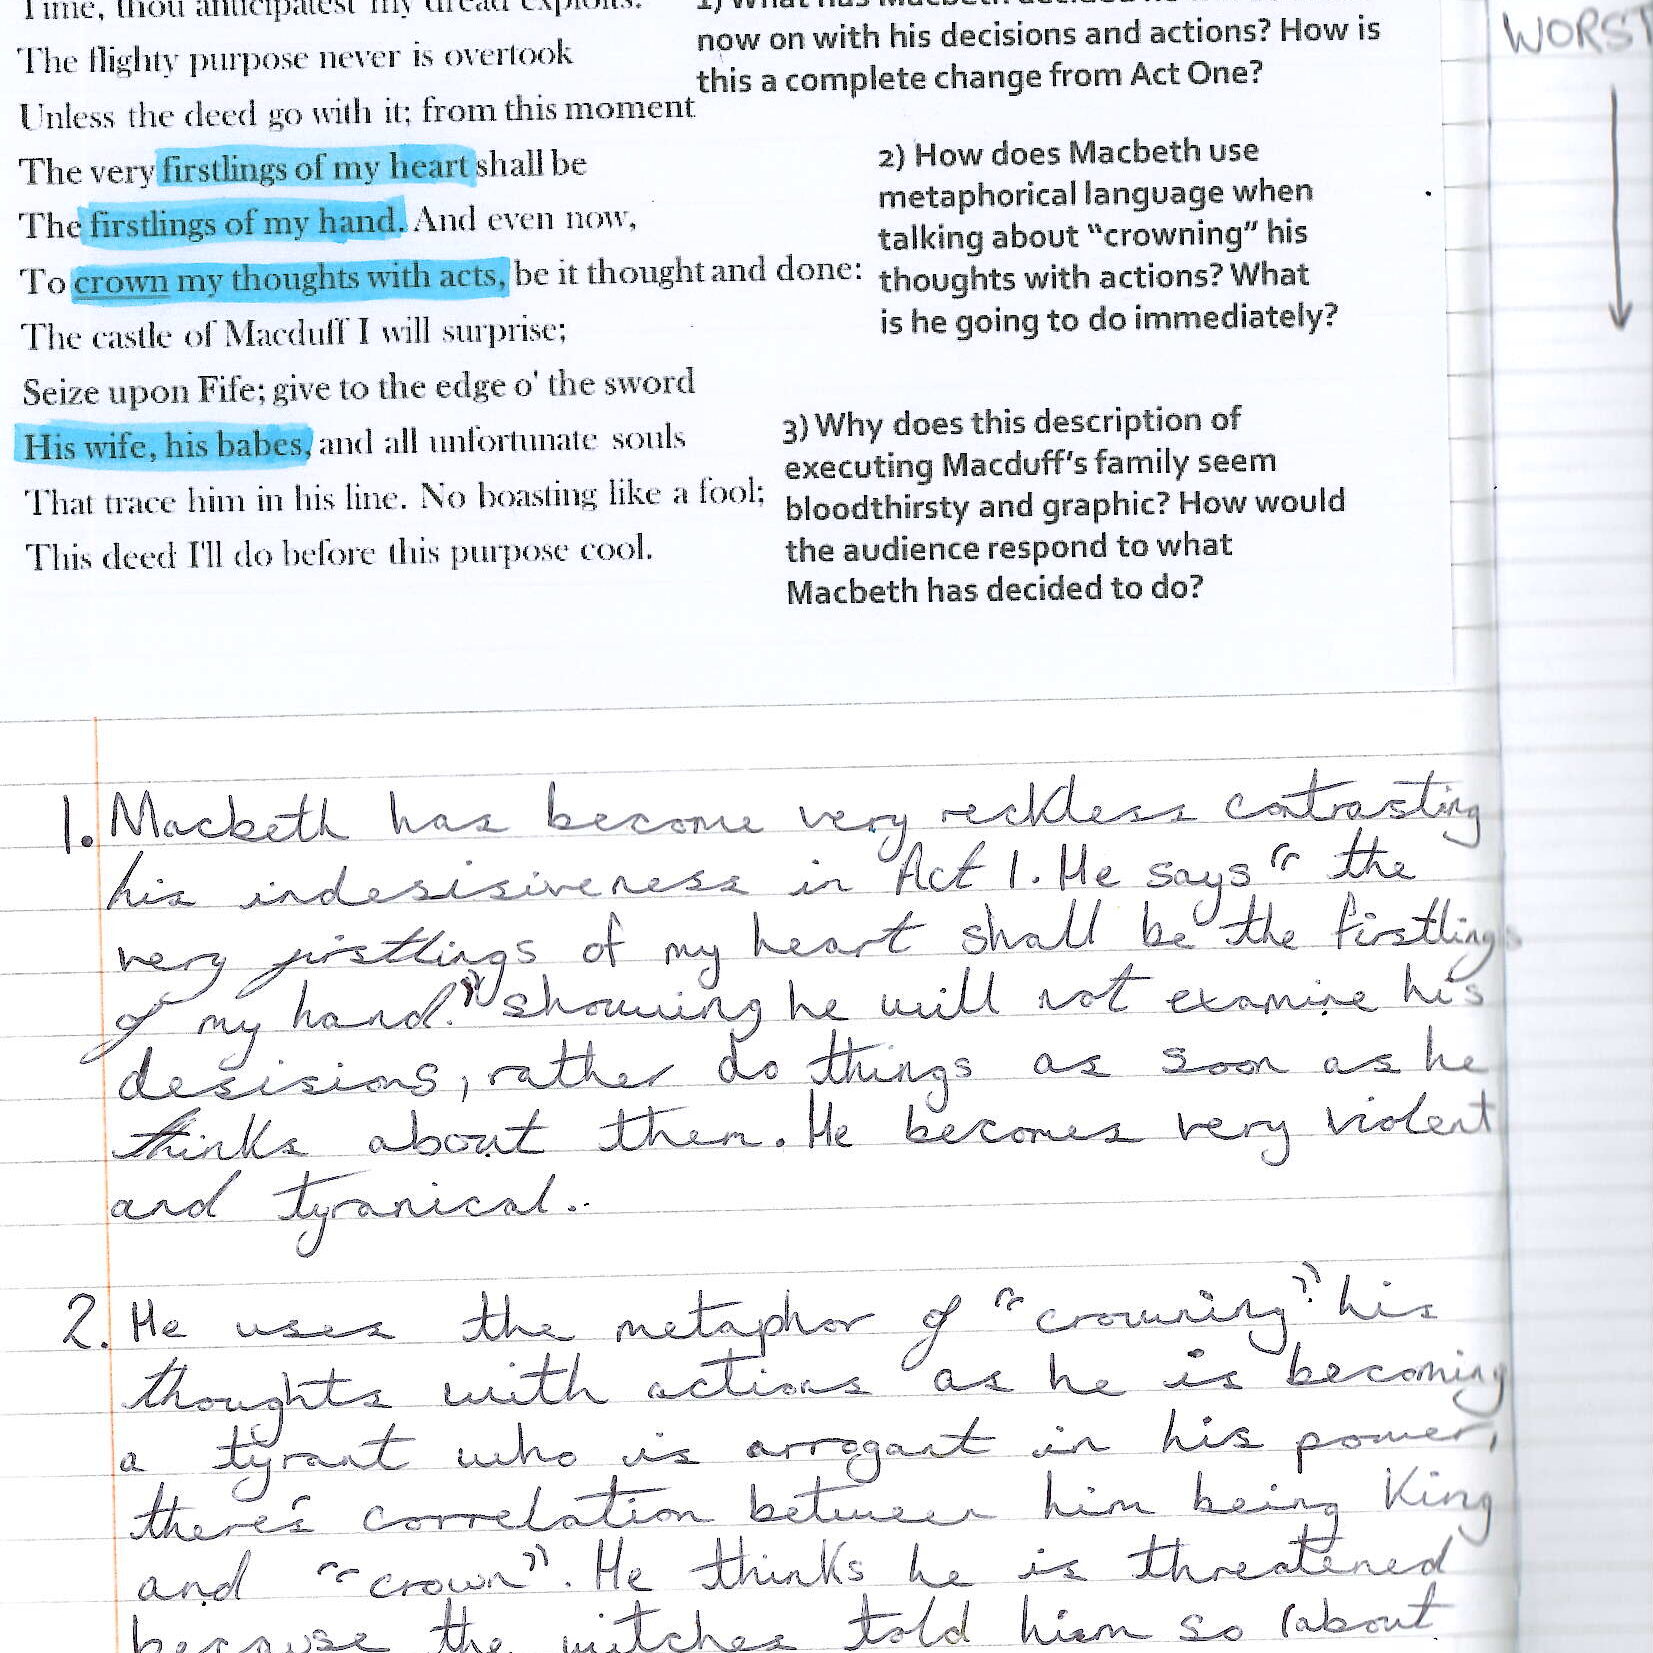 Time, thou anticipatest my dread exploits:
The flighty purpose never is overtook
Unless the deed go with it; from this moment
The very firstlings of my heart shall be
The firstlings of my hand. And even now,
To crown my thoughts with acts, be it thought and done:
The castle of Macduff I will surprise;
Seize upon Fife; give to the edge o' the sword
His wife, his babes, and all unfortunate souls
That trace him in his line. No boasting like a fool;
This deed I'll do before this purpose cool.
1) What has Macbeth decided
now on with his decisions and actions? How is
this a complete change from Act One?
2) How does Macbeth use
metaphorical language when
talking about “crowning” his
thoughts with actions? What
is he going to do immediately?
3) Why does this description of
executing Macduff’s family seem
bloodthirsty and graphic? How would
the audience respond to what
Macbeth has decided to do?
WORST
1. Macbeth has become very reckless contrasting
his indesisiveness in Act 1. He says “the
very firstlings of my heart shall be the firstlings
of my hand.” showing he will not examine his
desisions, rather do things as soon as he
thinks about them. He becomes very violent
and tyranical..
2. He uses the metaphor of “crowning” his
thoughts with actions as he is becoming
a tyrant who is arrogant in his power,
there's correlation between him being King
and “crown”. He thinks he is threatened
because the witches told him so (about